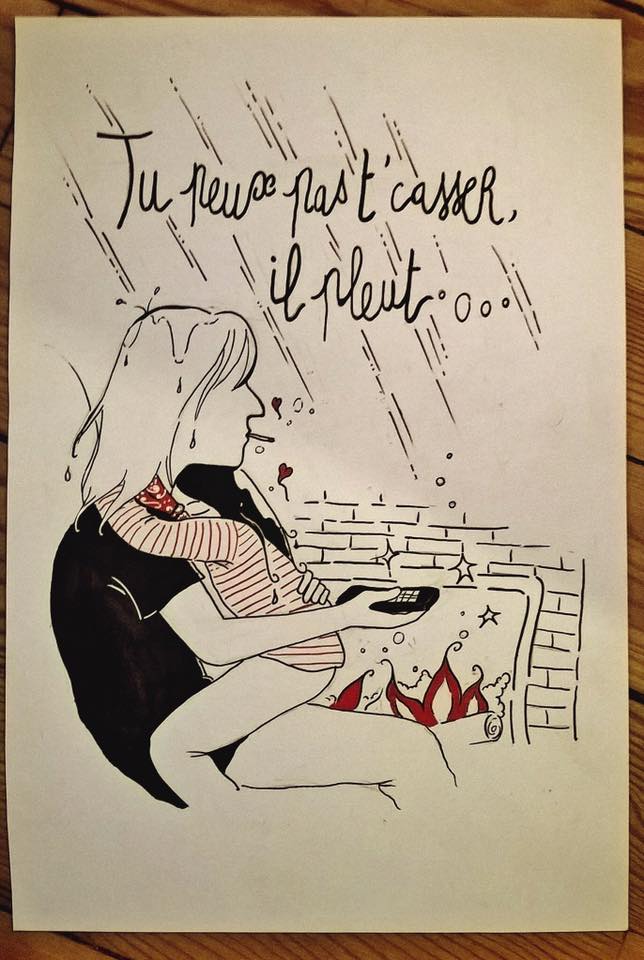 Tu peux pas t'casser,
il pleut...